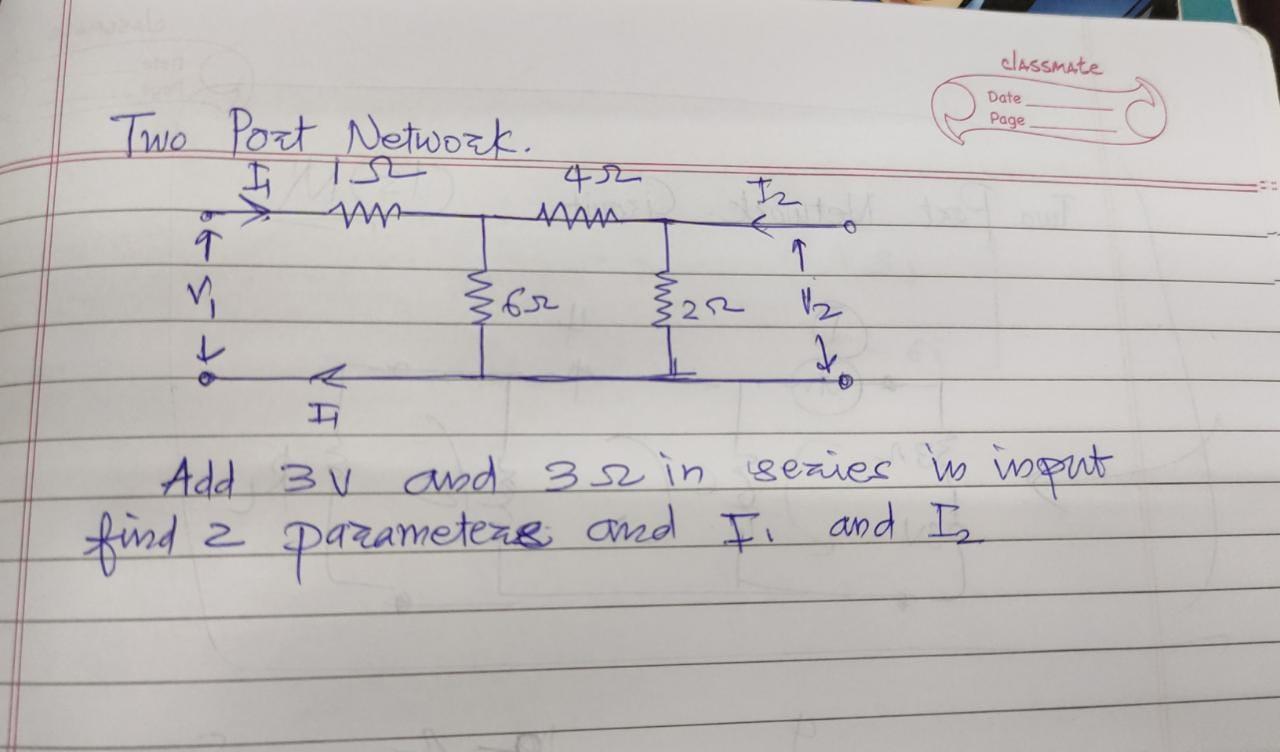 classmate
Date
Page
Two Port Network.
I1 1Ω 4Ω I2
V1 6Ω 2Ω V2
I1
Add 3V and 3Ω in series in input
find 2 parameters and I1 and I2